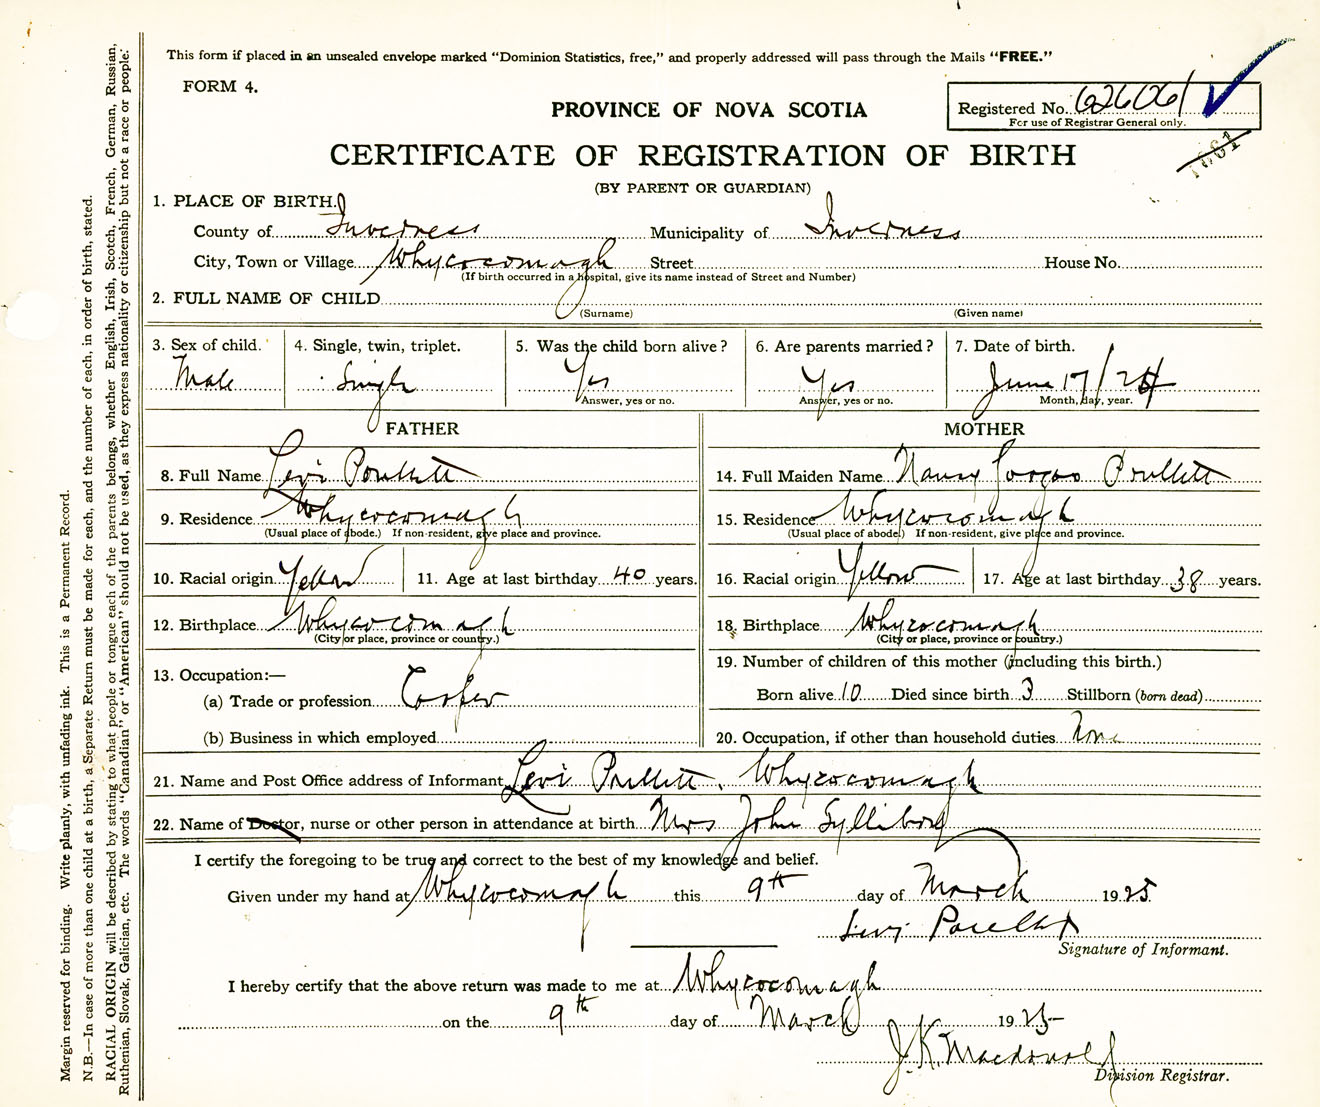 This form if placed in an unsealed envelope marked "Dominion Statistics, free," and properly addressed will pass through the Mails "FREE."
FORM 4.
PROVINCE OF NOVA SCOTIA
Registered No. 626061
For use of Registrar General only.
CERTIFICATE OF REGISTRATION OF BIRTH
(BY PARENT OR GUARDIAN)
1. PLACE OF BIRTH.
County of Inverness Municipality of Inverness
City, Town or Village Whycocomagh Street House No.
(If birth occurred in a hospital, give its name instead of Street and Number)
2. FULL NAME OF CHILD
(Surname) (Given name)
3. Sex of child. 4. Single, twin, triplet. 5. Was the child born alive? 6. Are parents married? 7. Date of birth.
Male Single Yes Yes June 17/24
Answer, yes or no. Answer, yes or no. Month, day, year.
FATHER MOTHER
8. Full Name Levi Poullett 14. Full Maiden Name Nancy Poullett
9. Residence Whycocomagh 15. Residence Whycocomagh
(Usual place of abode.) If non-resident, give place and province. (Usual place of abode.) If non-resident, give place and province.
10. Racial origin Yellow 11. Age at last birthday 40 years. 16. Racial origin Yellow 17. Age at last birthday 38 years.
12. Birthplace Whycocomagh 18. Birthplace Whycocomagh
(City or place, province or country.) (City or place, province or country.)
13. Occupation:— 19. Number of children of this mother (including this birth.)
(a) Trade or profession Cooper Born alive 10 Died since birth 3 Stillborn (born dead)
(b) Business in which employed 20. Occupation, if other than household duties None
21. Name and Post Office address of Informant Levi Poullett, Whycocomagh
22. Name of Doctor, nurse or other person in attendance at birth Mrs John Sylliboy
I certify the foregoing to be true and correct to the best of my knowledge and belief.
Given under my hand at Whycocomagh this 9th day of March 1925
Levi Poullett
Signature of Informant.
I hereby certify that the above return was made to me at Whycocomagh
on the 9th day of March 1925
J. K. Macdonald
Division Registrar.
Margin reserved for binding. Write plainly, with unfading ink. This is a Permanent Record.
N.B.—In case of more than one child at a birth, a Separate Return must be made for each, and the number of each, in order of birth, stated.
RACIAL ORIGIN will be described by stating to what people or tongue each of the parents belongs, whether English, Irish, Scotch, French, German, Russian,
Ruthenian, Slovak, Galician, etc. The words "Canadian" or "American" should not be used, as they express nationality or citizenship but not a race or people.